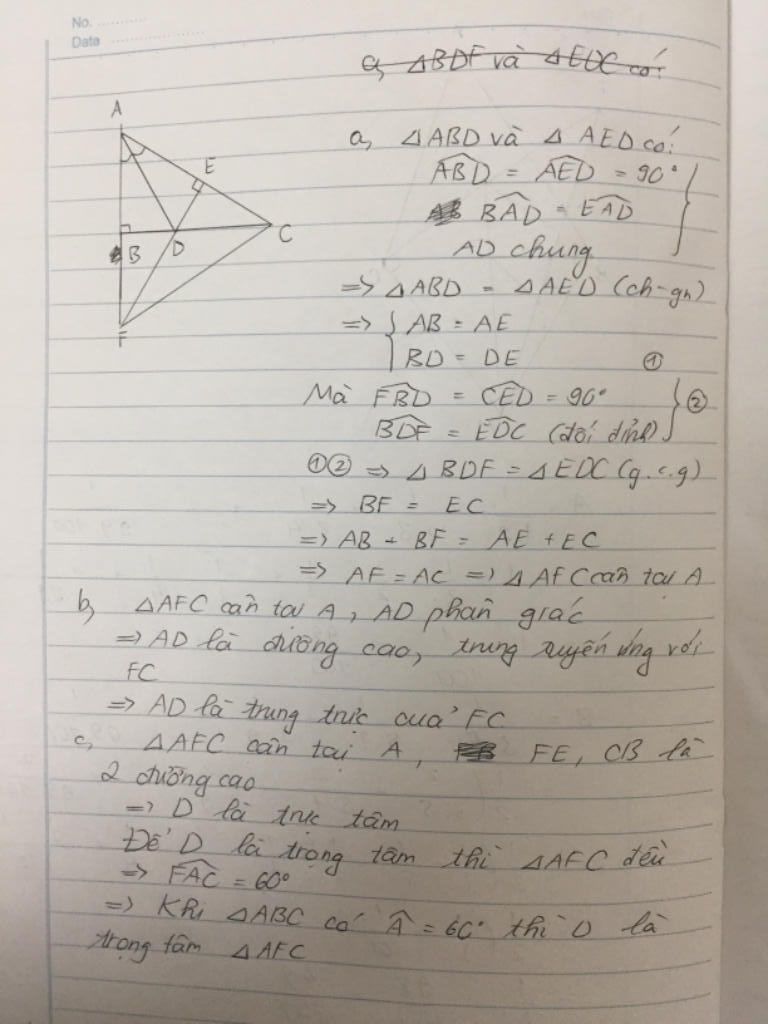 No. ............
Date .....................
a, △BDF và △EDC có:
A
E
B
D
C
F
a, △ABD và △ AED có:
ABD = AED = 90°
BAD = EAD
AD chung
=> △ABD = △AED (ch-gn)
=> { AB = AE
BD = DE ①
Mà FBD = CED = 90°
BDF = EDC (đối đỉnh) } ②
①② => △ BDF = △EDC (g.c.g)
=> BF = EC
=> AB + BF = AE + EC
=> AF = AC => △AFC cân tại A
b, △AFC cân tại A, AD phân giác
=> AD là đường cao, trung tuyến ứng với
FC
=> AD là trung trực của FC
c, △AFC cân tại A, FE, CB là
2 đường cao
=> D là trực tâm
Để D là trọng tâm thì △AFC đều
=> FAC = 60°
=> Khi △ABC có Â = 60° thì D là
trọng tâm △AFC